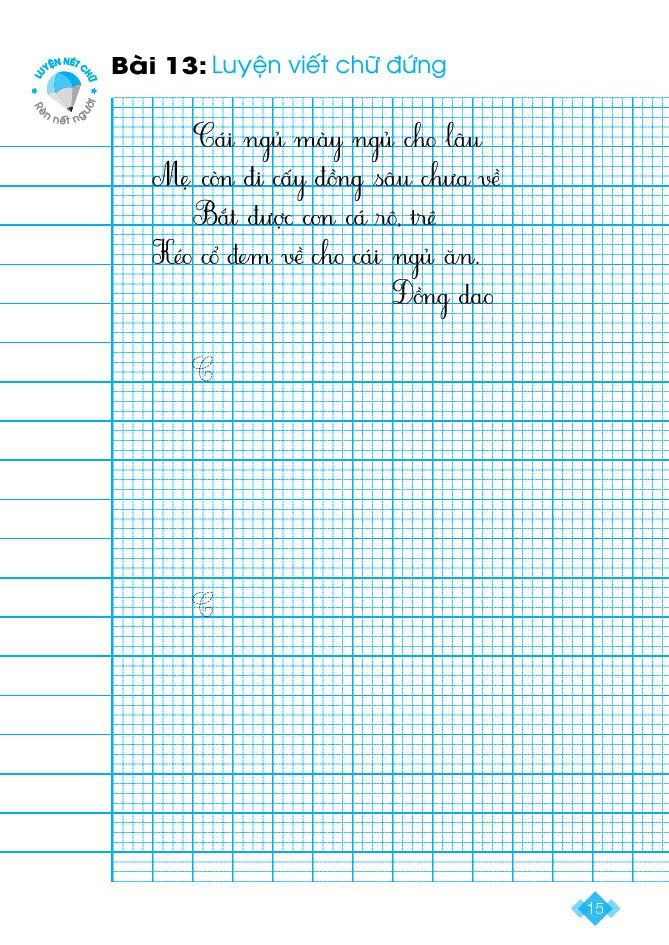 LUYỆN NÉT CHỮ
Rèn nết người
Bài 13: Luyện viết chữ đứng
Cái ngủ mày ngủ cho lâu
Mẹ còn đi cấy đồng sâu chưa về
Bắt được con cá rô, trê
Kéo cổ đem về cho cái ngủ ăn.
Đồng dao
C
C
15